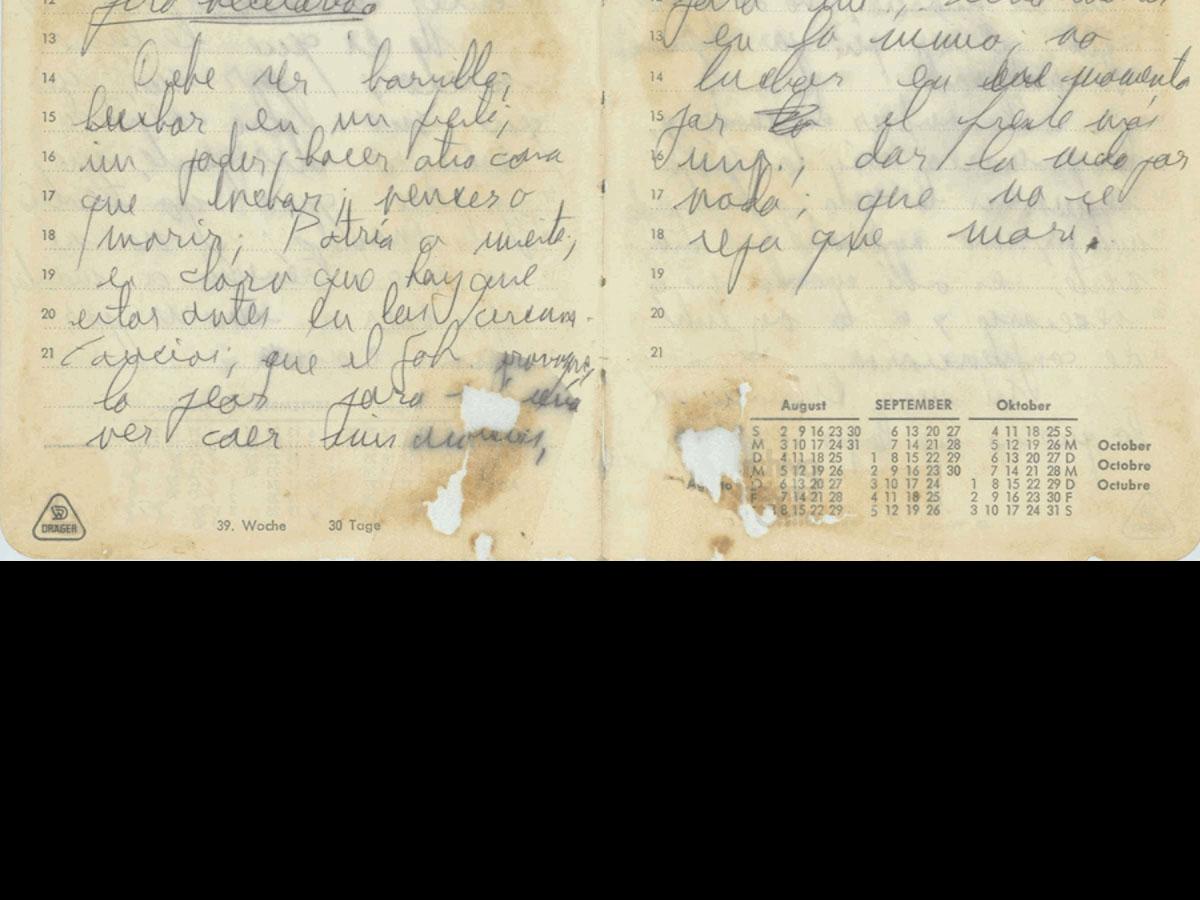 12 pero necesarias
13
14 Debe ser barrilla;
15 luchar en un frente;
16 un poder; hacer otra cosa
17 que luchar; vencer o
18 morir; Patria o muerte;
19 es claro que hay que
20 estar antes en las circuns-
21 tancias; que el Gob. provoque
lo peor para
ver caer sus
DRÄGER
39. Woche 30 Tage
13 en la mano; no
14 luchar en ese momento
15 por el frente más
16 dar la vida por
17 nada; que no se
18 sepa que mori.
19
20
21
August SEPTEMBER Oktober
S 2 9 16 23 30 6 13 20 27 4 11 18 25 S
M 3 10 17 24 31 7 14 21 28 5 12 19 26 M October
D 4 11 18 25 1 8 15 22 29 6 13 20 27 D
M 5 12 19 26 2 9 16 23 30 7 14 21 28 M Octobre
D 6 13 20 27 3 10 17 24 1 8 15 22 29 D Octubre
F 7 14 21 28 4 11 18 25 2 9 16 23 30 F
8 15 22 29 5 12 19 26 3 10 17 24 31 S